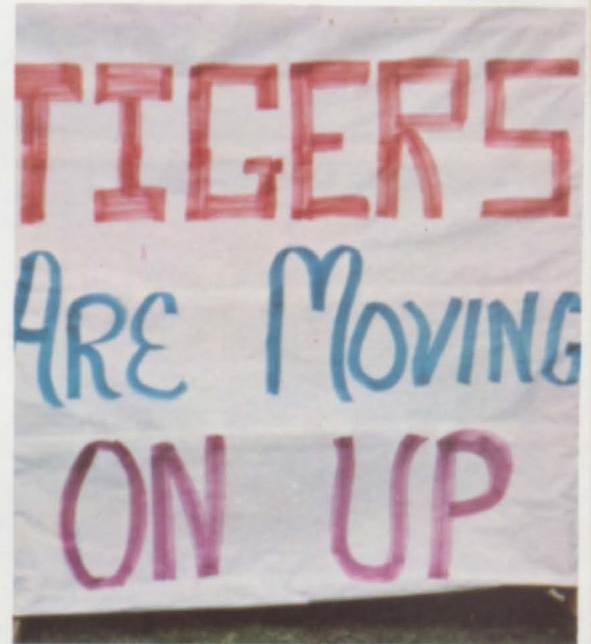 TIGERS
ARE MOVING
ON UP